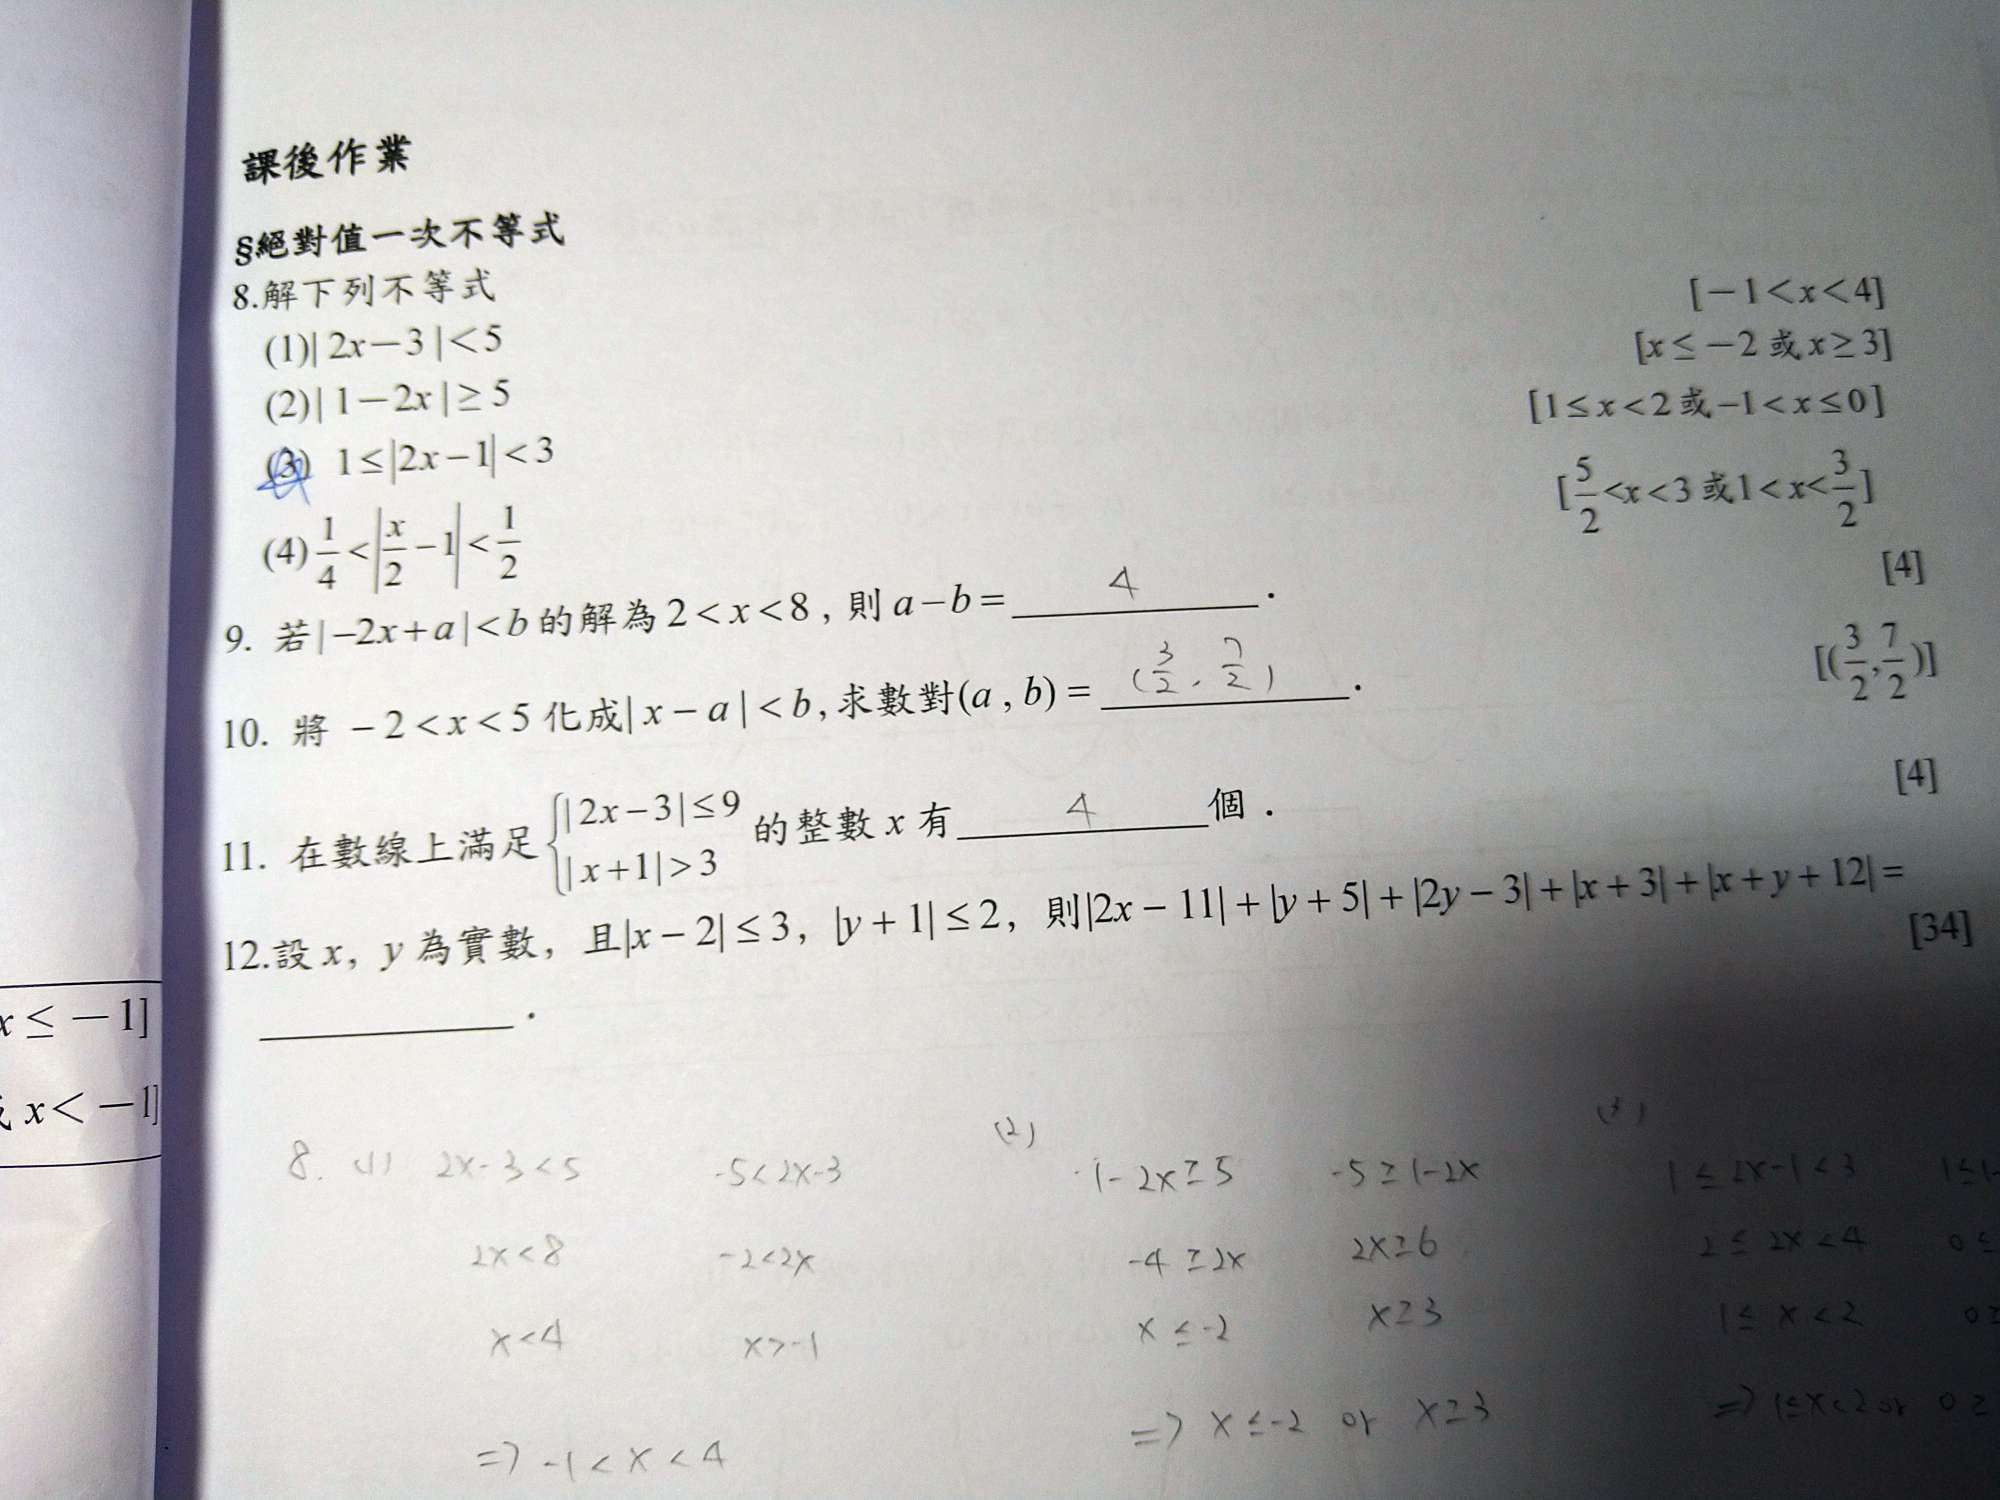 課後作業
§絕對值一次不等式
8.解下列不等式
(1)| 2x－3 |＜5 [－1＜x＜4]
(2)| 1－2x |≥ 5 [x ≤ －2 或 x ≥ 3]
(3) 1≤|2x−1|<3 [1≤x<2或−1<x≤0]
(4) 1/4 < |x/2 −1| < 1/2 [5/2<x<3或1<x<3/2]
9. 若|−2x+a|<b的解為2<x<8, 則a−b= 4 . [4]
10. 將 −2<x<5 化成|x−a|<b,求數對(a , b)= (3/2, 7/2) . [(3/2,7/2)]
11. 在數線上滿足{|2x−3|≤9 |x+1|>3 的整數 x 有 4 個． [4]
12.設 x, y 為實數, 且|x−2|≤3, |y+1|≤2, 則|2x−11|+|y+5|+|2y−3|+|x+3|+|x+y+12|=
[34]
.
x ≤ －1]
x＜－1]
8. (1) 2x-3<5 -5<2x-3
2x<8 -2<2x
x<4 x>-1
=> -1<x<4
(2)
1-2x≥5 -5≥1-2x
-4≥2x 2x≥6
x≤-2 x≥3
=> x≤-2 or x≥3
1≤2x-1<3 1≤1-
2≤2x<4 0≤
1≤x<2
=> 1≤x<2 or 0≥